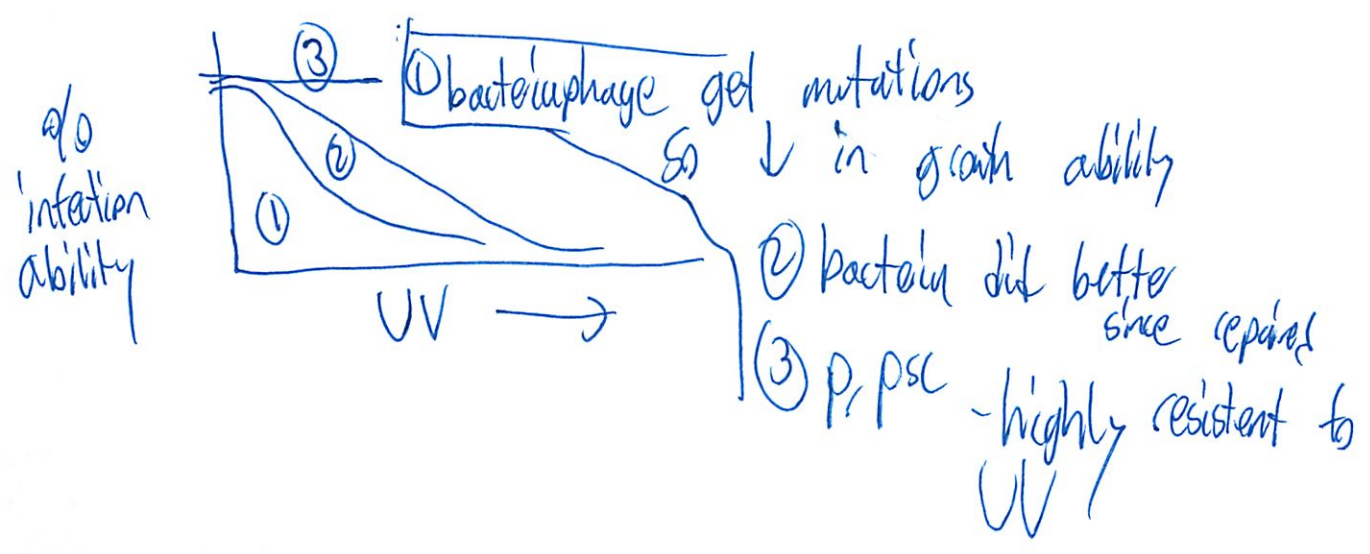 % infection ability
③
②
①
UV →
① bacteiuphage get mutations
So ↓ in growth ability
② bactein did bette
since repaired
③ PrPsc
- highly resistent to
UV